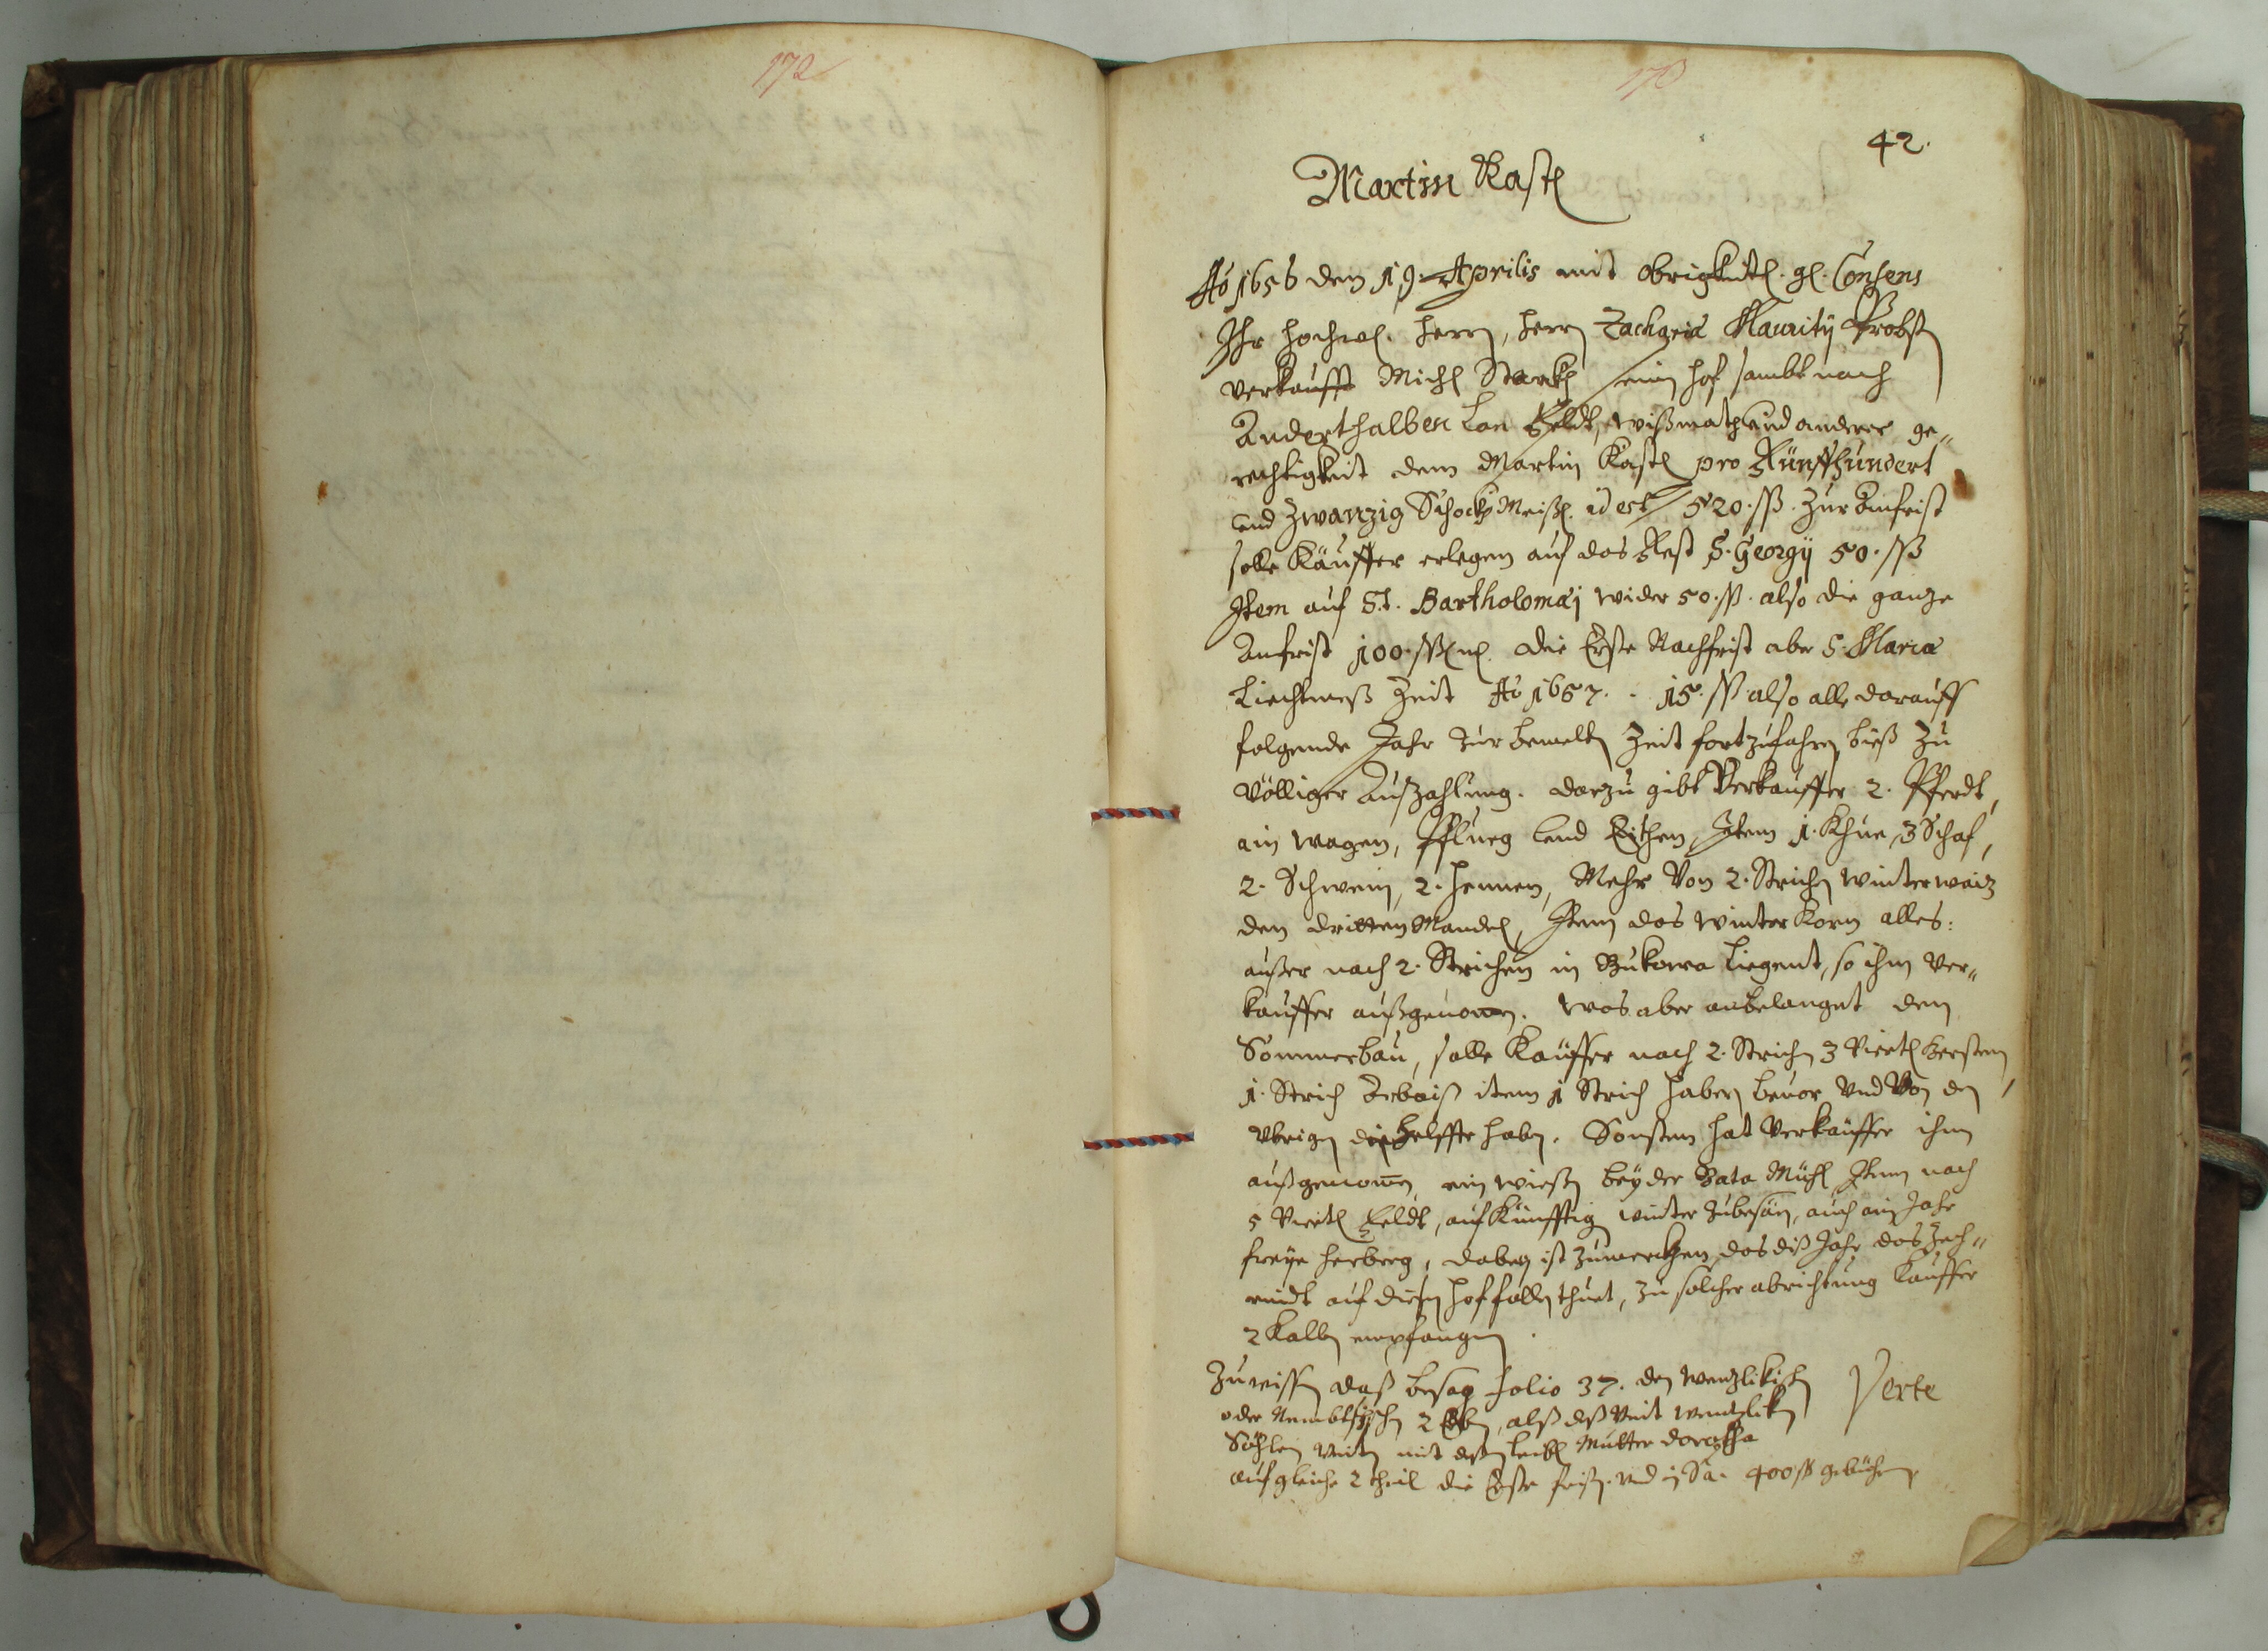 172
173
42.
Martin Kastl
Ao 1656 den 19. Aprilis mit obrigkeitl. gl. Consens
Ihr hochw. herrn, herrn Zachariæ Maurity Probst
verkaufft Michl Starck sein hof sambt nach
Anderthalben Lan Feldt, wißmath und anderer ge„
rechtigkeit dem Martin Kastl pro Fünffhundert
und Zwanzig Schockh Meiß. id est 520 ß. Zur Anfrist
solle Käuffer erlegen auf das Fest S. Georgÿ 50. ß
Item auf St. Bartholomæj wider 50. ß. also die ganze
Anfrist 100. ß. Die Erste Nachfrist aber S. Mariæ
Liechtmeß Zeit Ao 1657. . 15. ß. also alle darauff
folgende Jahr zur bemelten Zeit fortzufahren bieß zu
völliger Außzahlung. Darzu gibt Verkauffer 2. Pferdt,
ein wagen, Pflueg und Eithen, Item 1. Khue, 3 Schaf,
2. Schwein, 2. hennen, Mehr von 2. Strich winterwaiz
den dritten Mandl, Item das winter Korn alles:
außer nach 2. Strichen in Bukowa liegent, so ihm ver„
kauffer außgenomen. was aber anbelanget dem
Sommerbau, solle Kauffer nach 2. Strich 3 Viertl Gersten,
1. Strich Arbaiß item 1 Strich haber bevor und von den
übrigen die helffte haben. Sonsten hat Verkäuffer ihm
außgenomen ein wießen beÿ der Bata Mühl Item nach
5 Viertl Feldt, auf Künfftig winter zubesäen, auch ein Jahr
freÿe herberg, dabeÿ ist zumerckhen das diß Jahr das Zech„
rindt auf diesen hof fallen thuet, zu solcher abrichtung Kauffer
2 Kalben empfangen.
Zu wissen daß besag Folio 37. den Wenzlikischen
Verte
oder 2 Erben, alß deß Veit Wentzlik
Söhlen Veit mit deßen leibl Mutter Dorothea
auf gleiche 2 theil die Erste frist und in Sa. 400 ß gebühren